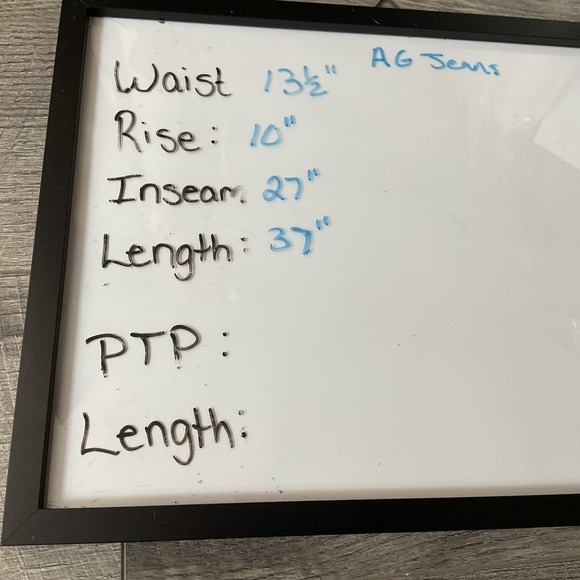 AG Jeans
Waist 13½"
Rise: 10"
Inseam. 27"
Length: 37"
PTP:
Length: